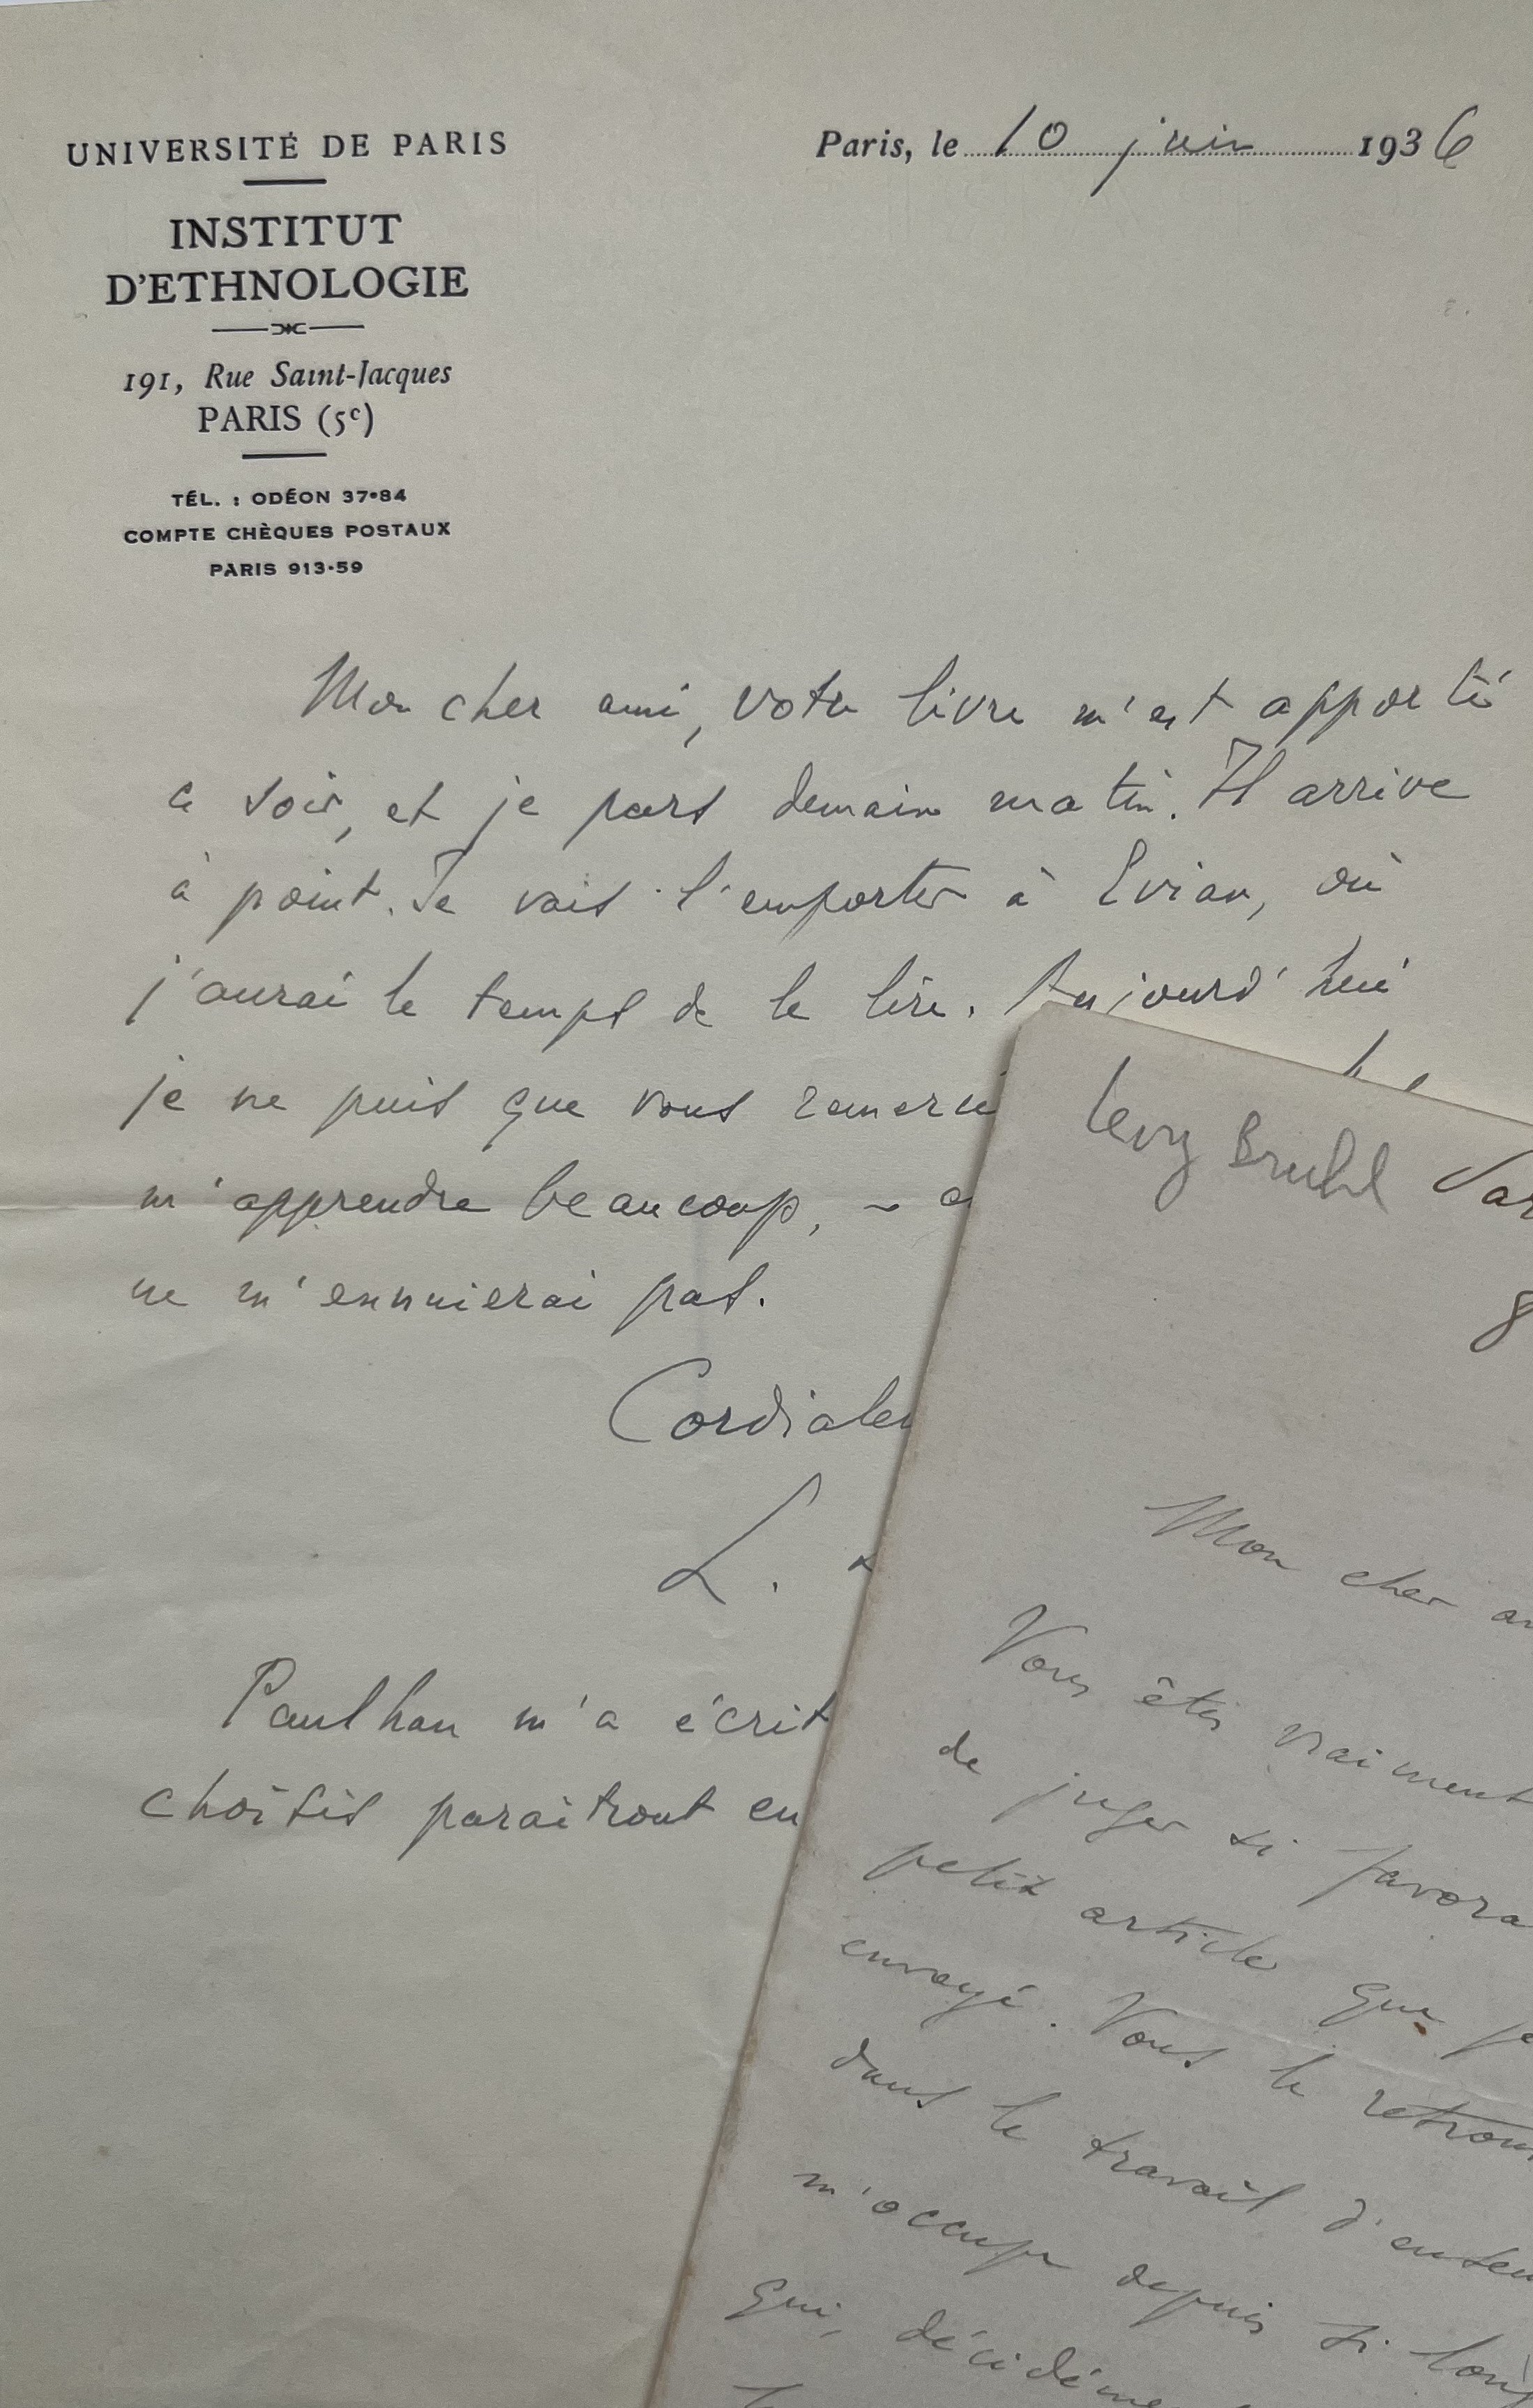 UNIVERSITÉ DE PARIS
INSTITUT
D'ETHNOLOGIE
191, Rue Saint-Jacques
PARIS (5e)
TÉL. : ODÉON 37-84
COMPTE CHÈQUES POSTAUX
PARIS 913-59
Paris, le 10 juin 1936
Mon cher ami, votre livre m'est apporté
ce soir, et je pars demain matin. Il arrive
à point. Je vais l'emporter à Evian, où
j'aurai le temps de le lire. Aujourd'hui
je ne puis que vous remerci
m'apprendre beaucoup, –
ne m'ennuierai pas.
Cordialem
L.
Paulhan m'a écrit
choisis paraitront en
Levy Bruhl Par
8
Mon cher am
Vous êtes vraiment
de juger si favora
petit article que je
envoyé. Vous le retrouv
dans le travail d'ensem
m'occupe depuis si long
qui, décidéme